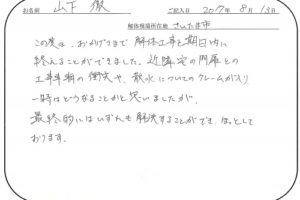 お名前 山下 徹 ご記入日 2017年 8月 13日
解体現場所在地 さいたま市
この度は、おかげさまで解体工事を期日内に
終えることができました。近隣宅の門扉との
工事車輌の衝突や、散水についてのクレームが入り
一時はどうなることかと思いましたが、
最終的にはいずれも解決することができ、ほっとして
おります。